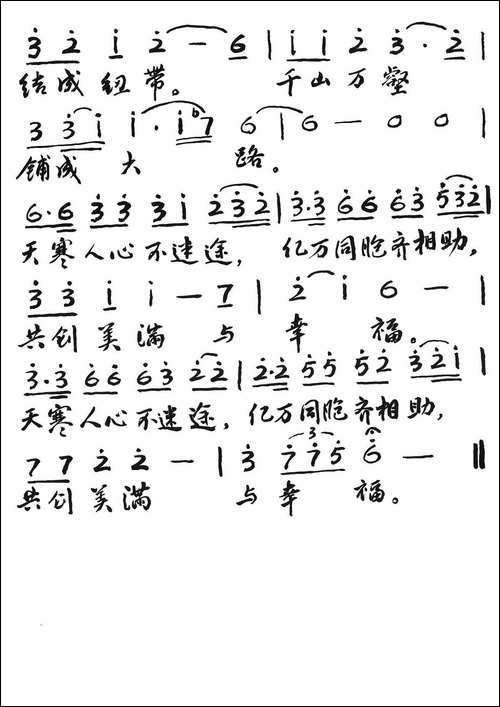 3̇ 2̇ 1̇ 2̇ — 6 | 1̇ 1̇ 2̇ 3̇ · 2̇ |
结成纽带。 千山万壑
3 3̇ 1̇ 1̇ · 1̇ ♭7 6 | 6 — 0 0 |
铺成大路。
6 · 6 3̇ 3̇ 3̇ 1̇ 2̇ 3̇ 2̇ | 3̇ · 3̇ 6̇ 6̇ 6̇ 3̇ 5̇ 3̇ 2̇ |
天寒人心不迷途, 亿万同胞齐相助,
3̇ 3̇ 1̇ 1̇ — 7 | 2̇ 1̇ 6 — |
共创美满与幸福。
3̇ · 3̇ 6̇ 6̇ 6̇ 3̇ 2̇ 2̇ | 2̇ · 2̇ 5̇ 5̇ 5̇ 2̇ 3̇ 2̇ 1̇ |
天寒人心不迷途, 亿万同胞齐相助,
7 7 2̇ 2̇ — | 3̇ 3 7̇ 7̇ 5̇ 6̇ — ‖
共创美满与幸福。